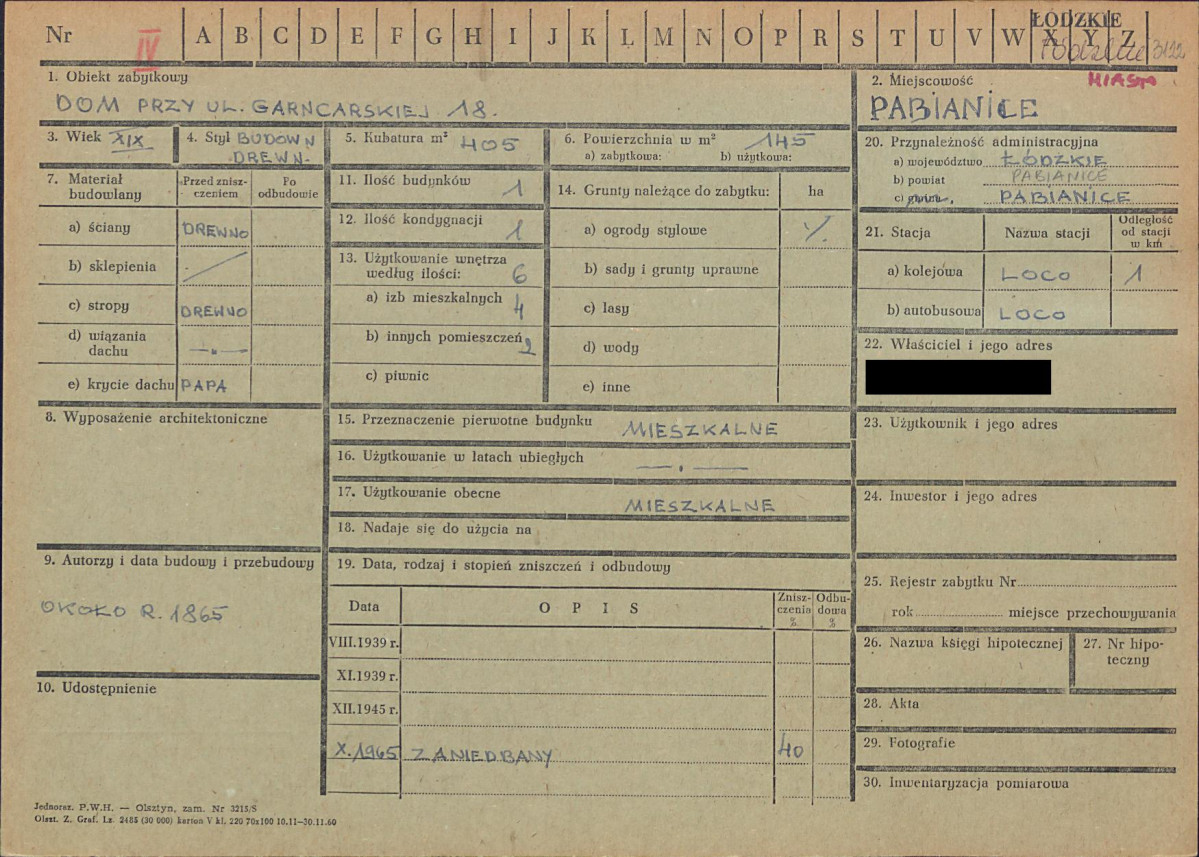 Nr IV A B C D E F G H I J K L M N O P R S T U V W X Y Z
ŁÓDZKIE
3122
1. Obiekt zabytkowy
DOM PRZY UL. GARNCARSKIEJ 18.
2. Miejscowość MIASTO
PABIANICE
3. Wiek XIX
4. Styl BUDOWN
DREWN.
5. Kubatura m² 405
6. Powierzchnia w m² 145
a) zabytkowa: b) użytkowa:
7. Materiał budowlany
Przed znisz-
czeniem
Po
odbudowie
a) ściany DREWNO
b) sklepienia
c) stropy DREWNO
d) wiązania
dachu —„—
e) krycie dachu PAPA
8. Wyposażenie architektoniczne
9. Autorzy i data budowy i przebudowy
OKOŁO R. 1865
10. Udostępnienie
11. Ilość budynków 1
12. Ilość kondygnacji 1
13. Użytkowanie wnętrza
według ilości: 6
a) izb mieszkalnych 4
b) innych pomieszczeń 2
c) piwnic
14. Grunty należące do zabytku: ha
a) ogrody stylowe
b) sady i grunty uprawne
c) lasy
d) wody
e) inne
15. Przeznaczenie pierwotne budynku MIESZKALNE
16. Użytkowanie w latach ubiegłych —„—
17. Użytkowanie obecne MIESZKALNE
18. Nadaje się do użycia na
19. Data, rodzaj i stopień zniszczeń i odbudowy
Data OPIS
Znisz-
czenia
%
Odbu-
dowa
%
VIII.1939 r.
XI.1939 r.
XII.1945 r.
X.1965 ZANIEDBANY 40
20. Przynależność administracyjna
a) województwo ŁÓDZKIE
b) powiat PABIANICE
c) gmina PABIANICE
21. Stacja Nazwa stacji
Odległość
od stacji
w km
a) kolejowa LOCO 1
b) autobusowa LOCO
22. Właściciel i jego adres
23. Użytkownik i jego adres
24. Inwestor i jego adres
25. Rejestr zabytku Nr
rok miejsce przechowywania
26. Nazwa księgi hipotecznej
27. Nr hipo-
teczny
28. Akta
29. Fotografie
30. Inwentaryzacja pomiarowa
Jednoraz. P.W.H. — Olsztyn, zam. Nr 3215/S
Olszt. Z. Graf. Lz. 2485 (30 000) karton V kl. 220 70x100 10.11—30.11.60